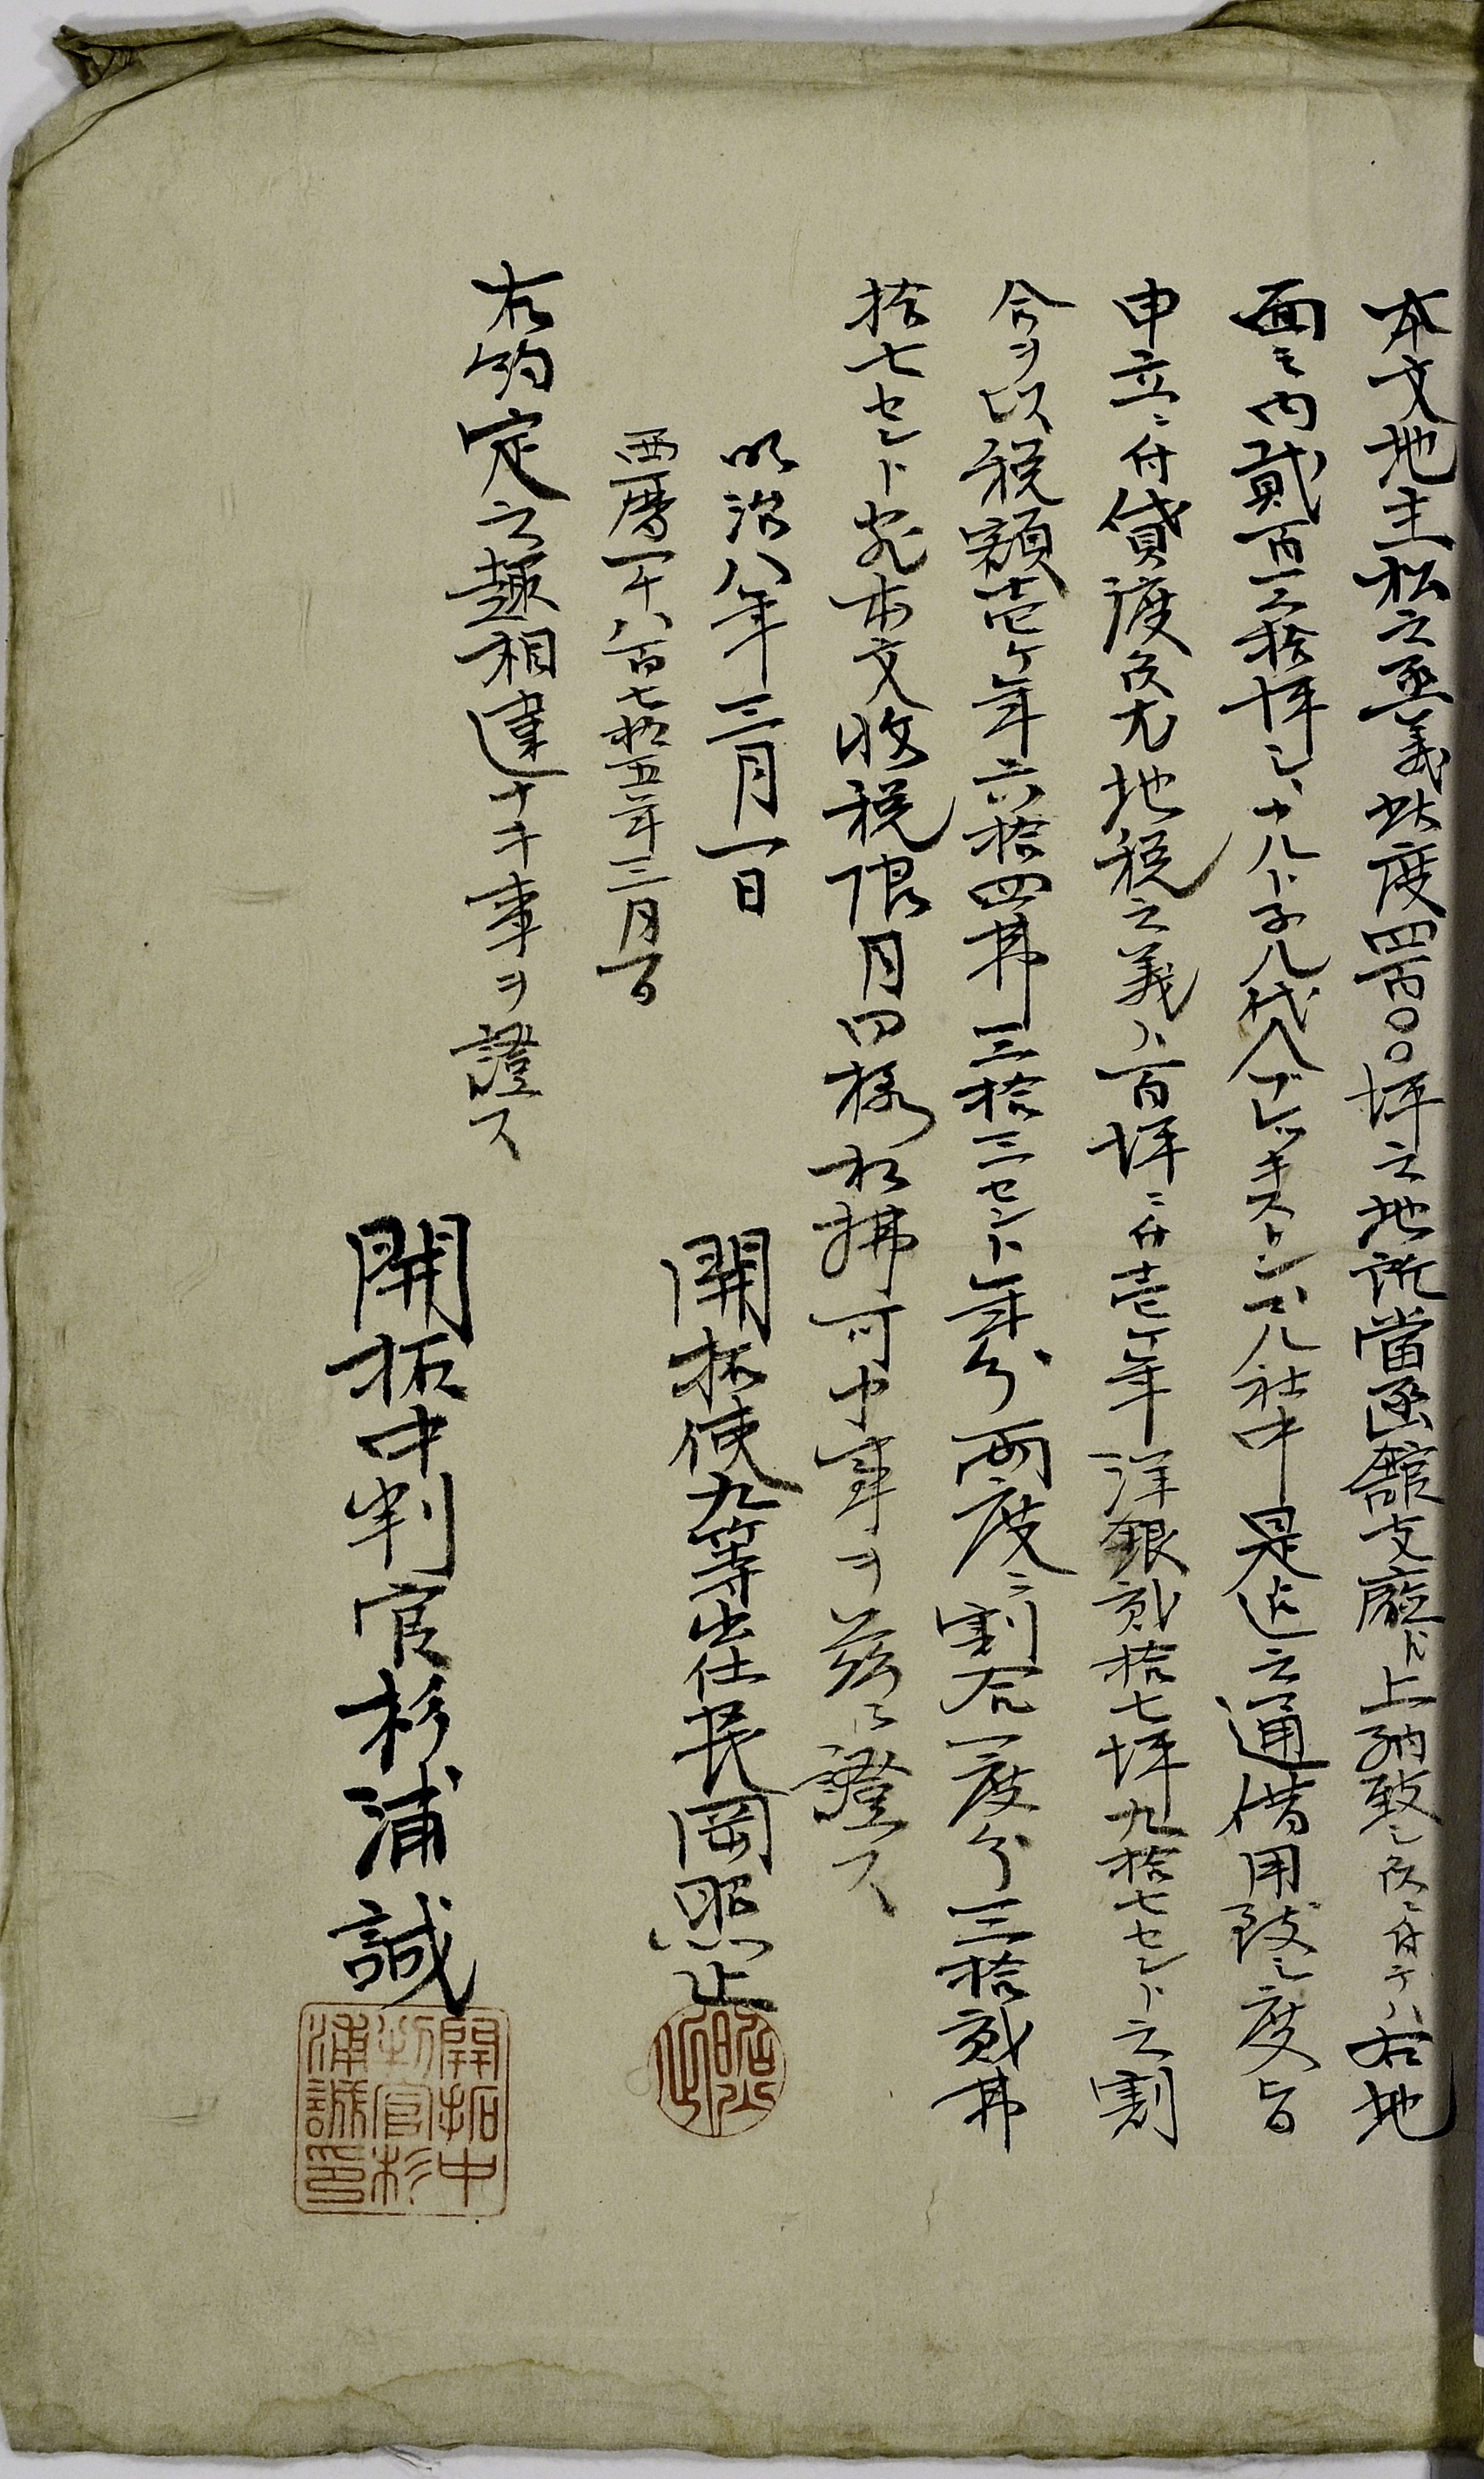 本文地主松之丞義此度四百〇〇坪之地所當函館支廰ヘ上納致シ候ニ付テハ右地
面之内貳百三拾坪シ、ナルド子ル代人ブレッキストンマル社中是迄之通借用致シ度旨
申立ニ付貸渡候尤地税之義ハ百坪ニ付壱ケ年洋銀貳拾七坪九拾七セント之割
合ヲ以税額壱ケ年六拾四弗三拾三セント年分両度ニ割合一度分三拾貳弗
拾七セント宛本文收税限月同様相拂可申事ヲ茲ニ證ス
明治八年三月一日
西暦一千八百七拾五年三月一日
開拓使九等出仕長岡照止
右約定之趣相違ナキ事ヲ證ス
開拓中判官杉浦誠
開拓中判官杉浦誠印